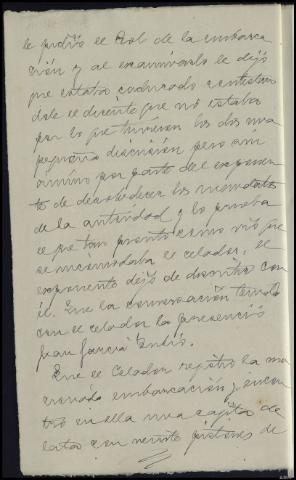 le pidió el Rol de la embarca
ción y al examinarlo le dijo
que estaba caducado contestan
dole el dicente que no estaba
por lo que tuvieron los dos una
pequeña discusión pero sin
animo por parte del exponen
te de desobedecer los mandatos
de la autoridad y lo prueba
el que tan pronto como vió que
se incomodaba el celador, el
exponente dejó de discutir con
él. Que la conversación tenida
con el celador la presenció
Juan García
Que el Celador registró la me
cionada embarcación y encon
tró en ella una cajita de
lata con veinte pistones de